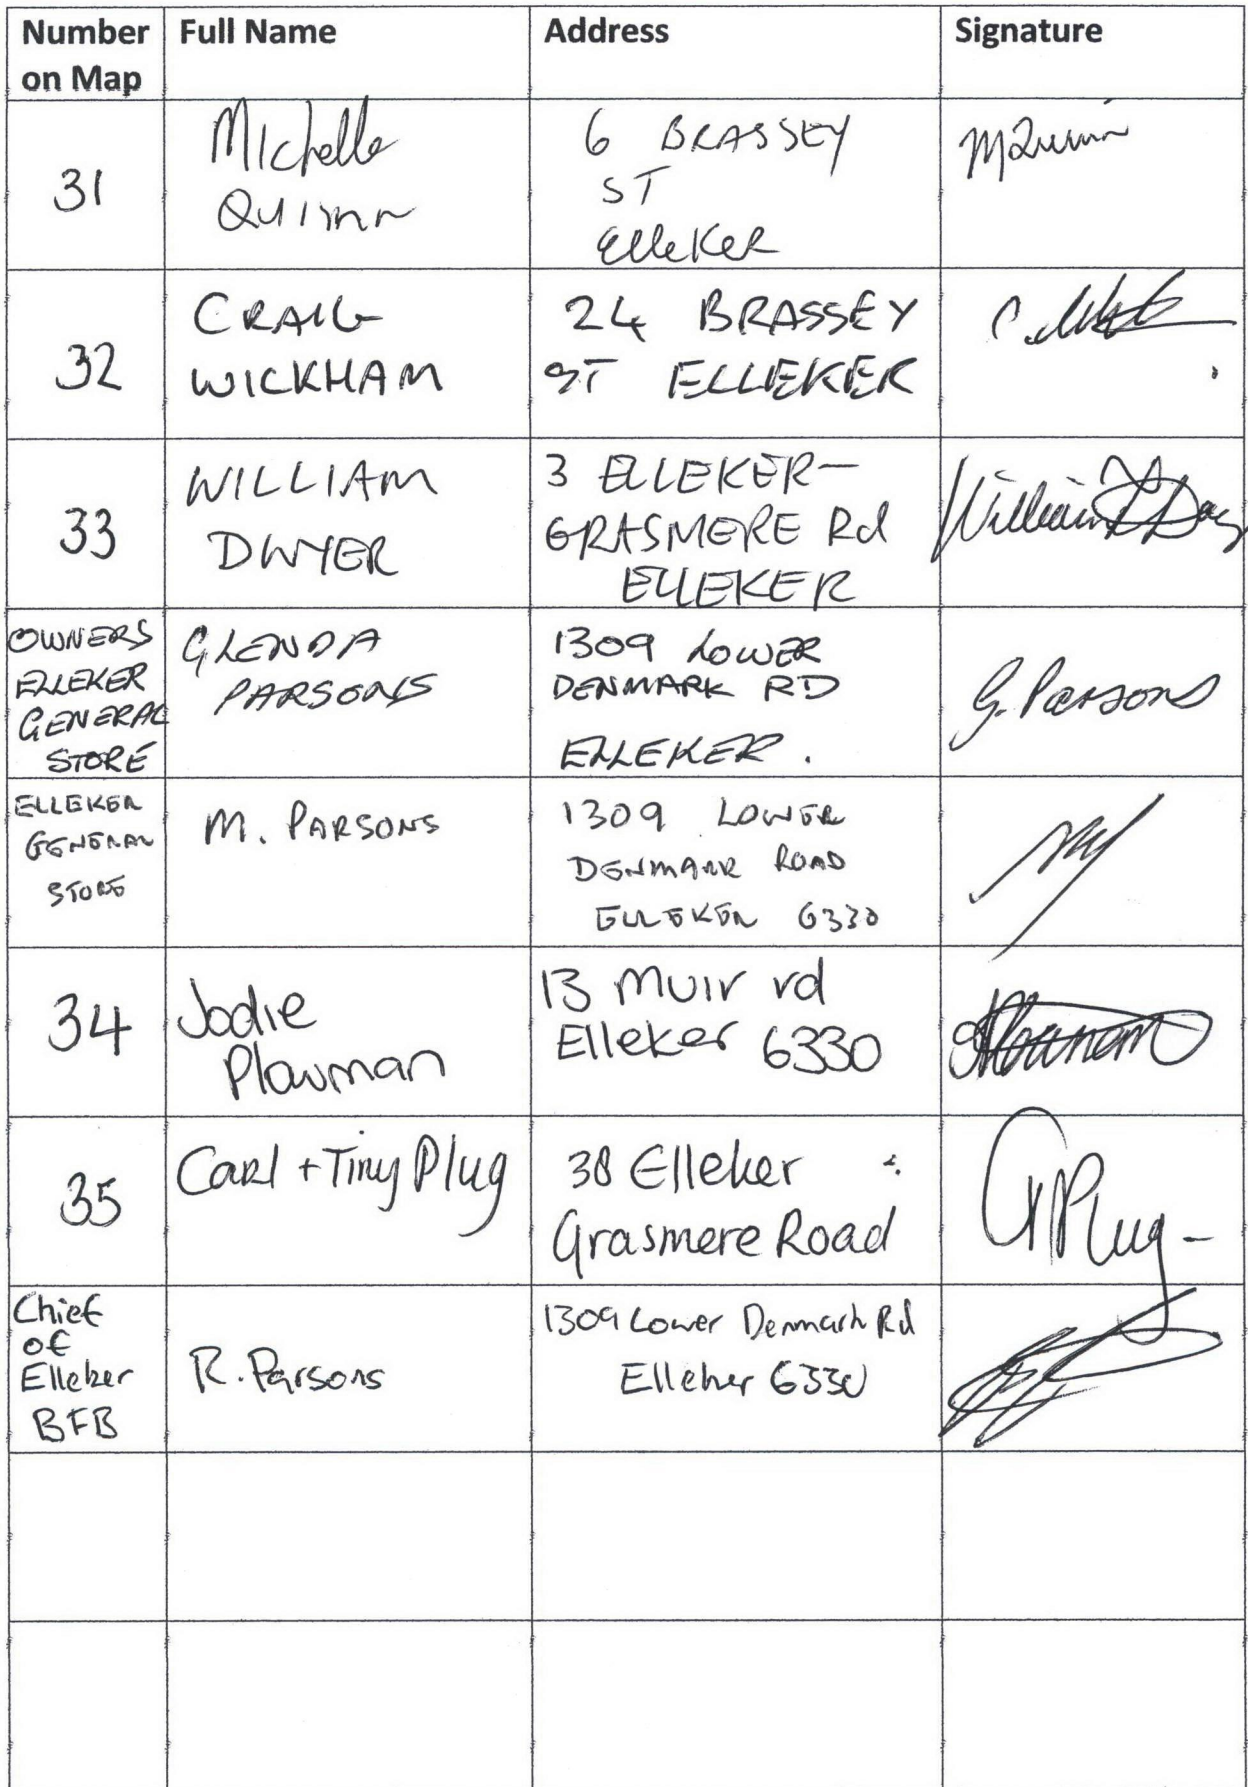 Number on Map Full Name Address Signature
31 Michelle Quinn 6 BRASSEY ST Elleker MQuinn
32 CRAIG WICKHAM 24 BRASSEY ST ELLEKER
33 WILLIAM DWYER 3 ELLEKER- GRASMERE Rd ELLEKER William
OWNERS ELLEKER GENERAL STORE GLENDA PARSONS 1309 LOWER DENMARK RD ELLEKER. G. Parsons
ELLEKER GENERAL STORE M. PARSONS 1309 LOWER DENMARK ROAD ELLEKER 6330
34 Jodie Plowman 13 Muir rd Elleker 6330 Plowman
35 Carl + Tiny Plug 38 Elleker Grasmere Road Plug
Chief of Elleker BFB R. Parsons 1309 Lower Denmark Rd Elleker 6330